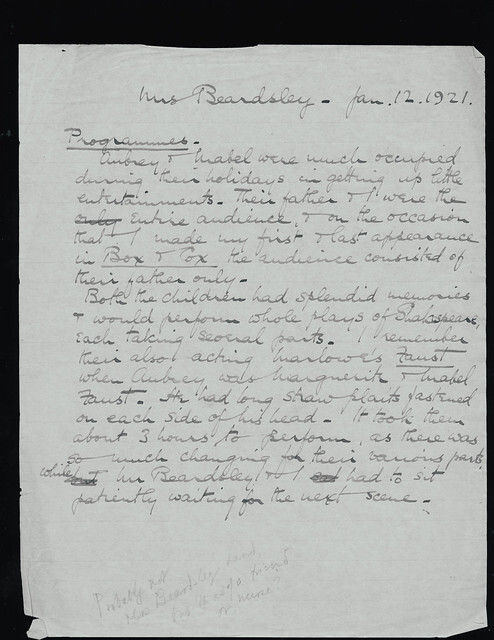 Mrs Beardsley - Jan. 12. 1921.
Programmes.
Aubrey & Mabel were much occupied
during their holidays in getting up little
entertainments. Their father & I were the
only entire audience, & on the occasion
that I made my first & last appearance
in Box & Cox the audience consisted of
their father only.
Both the children had splendid memories
& would perform whole plays of Shakespeare,
each taking several parts. I remember
their also acting Marlowe's Faust
when Aubrey was Marguerite & Mabel
Faust. He had long straw plaits fastened
on each side of his head. It took them
about 3 hours to perform, as there was
so much changing for their various parts,
while Mr Beardsley & I had to sit
patiently waiting for the next scene.
Probably not
Mrs Beardsley's hand,
but that of a friend
or nurse?